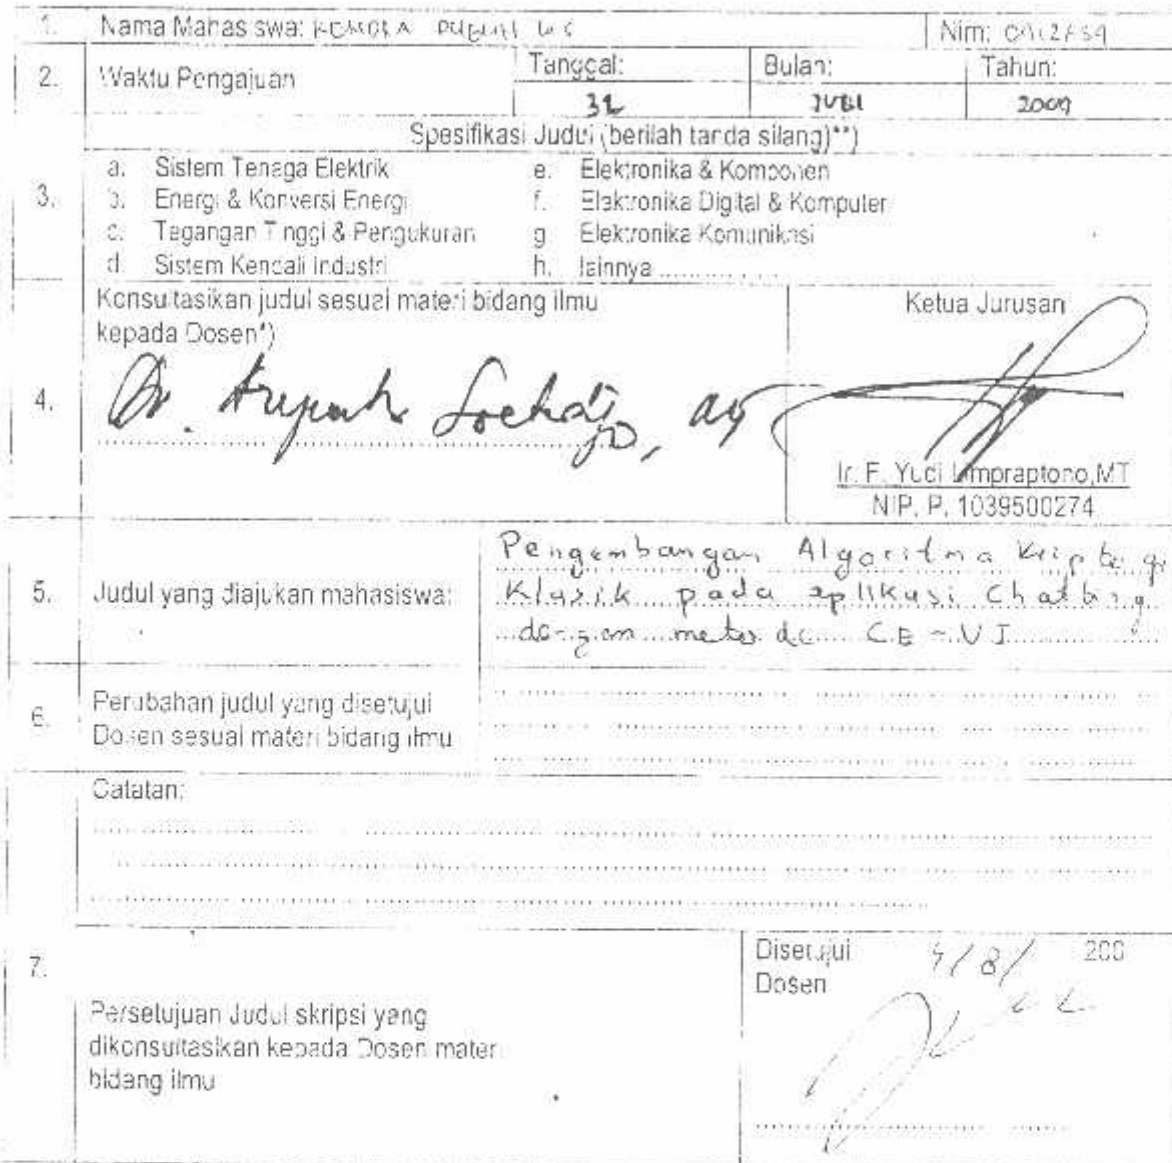 1. Nama Mahasiswa: Nim:
2. Waktu Pengajuan Tanggal: Bulan: Tahun:
2009
Spesifikasi Judul (berilah tanda silang)**)
3.
a. Sistem Tenaga Elektrik
b. Energi & Konversi Energi
c. Tegangan Tinggi & Pengukuran
d. Sistem Kendali Industri
e. Elektronika & Komponen
f. Elektronika Digital & Komputer
g. Elektronika Komunikasi
h. lainnya ..............
4.
Konsultasikan judul sesuai materi bidang ilmu
kepada Dosen*)
Ketua Jurusan
Ir. F. Yudi Limpraptono,MT
NIP. P. 1039500274
5. Judul yang diajukan mahasiswa:
Pengembangan Algoritma
Klasik pada aplikasi Chatting
dengan metode
6.
Perubahan judul yang disetujui
Dosen sesuai materi bidang ilmu
Catatan:
7.
Persetujuan Judul skripsi yang
dikonsultasikan kepada Dosen materi
bidang ilmu
Disetujui 4/8/ 200
Dosen